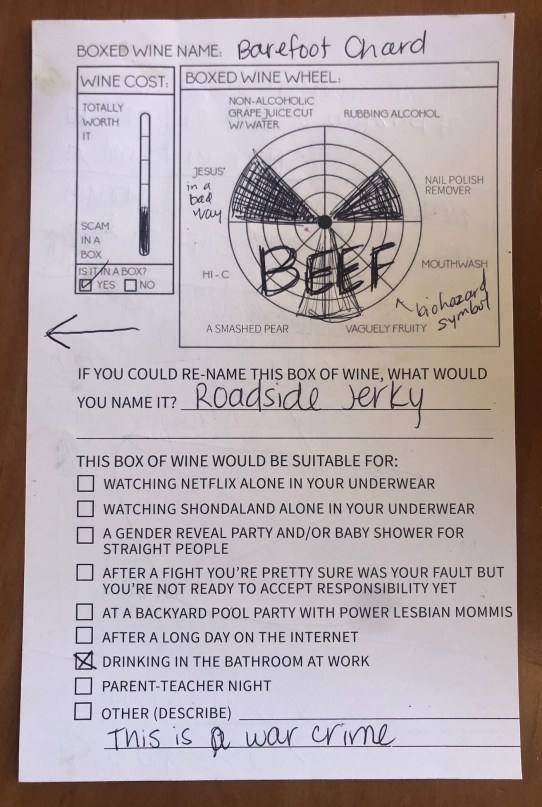 BOXED WINE NAME: Barefoot Chard
WINE COST:
TOTALLY
WORTH
IT
SCAM
IN A
BOX
IS IT IN A BOX?
YES NO
BOXED WINE WHEEL:
NON-ALCOHOLIC
GRAPE JUICE CUT
W/ WATER
RUBBING ALCOHOL
JESUS'
in a
bad
way
NAIL POLISH
REMOVER
BEEF
HI-C
MOUTHWASH
biohazard
symbol
A SMASHED PEAR
VAGUELY FRUITY
IF YOU COULD RE-NAME THIS BOX OF WINE, WHAT WOULD
YOU NAME IT? Roadside Jerky
THIS BOX OF WINE WOULD BE SUITABLE FOR:
WATCHING NETFLIX ALONE IN YOUR UNDERWEAR
WATCHING SHONDALAND ALONE IN YOUR UNDERWEAR
A GENDER REVEAL PARTY AND/OR BABY SHOWER FOR
STRAIGHT PEOPLE
AFTER A FIGHT YOU'RE PRETTY SURE WAS YOUR FAULT BUT
YOU'RE NOT READY TO ACCEPT RESPONSIBILITY YET
AT A BACKYARD POOL PARTY WITH POWER LESBIAN MOMMIS
AFTER A LONG DAY ON THE INTERNET
DRINKING IN THE BATHROOM AT WORK
PARENT-TEACHER NIGHT
OTHER (DESCRIBE)
This is a war crime